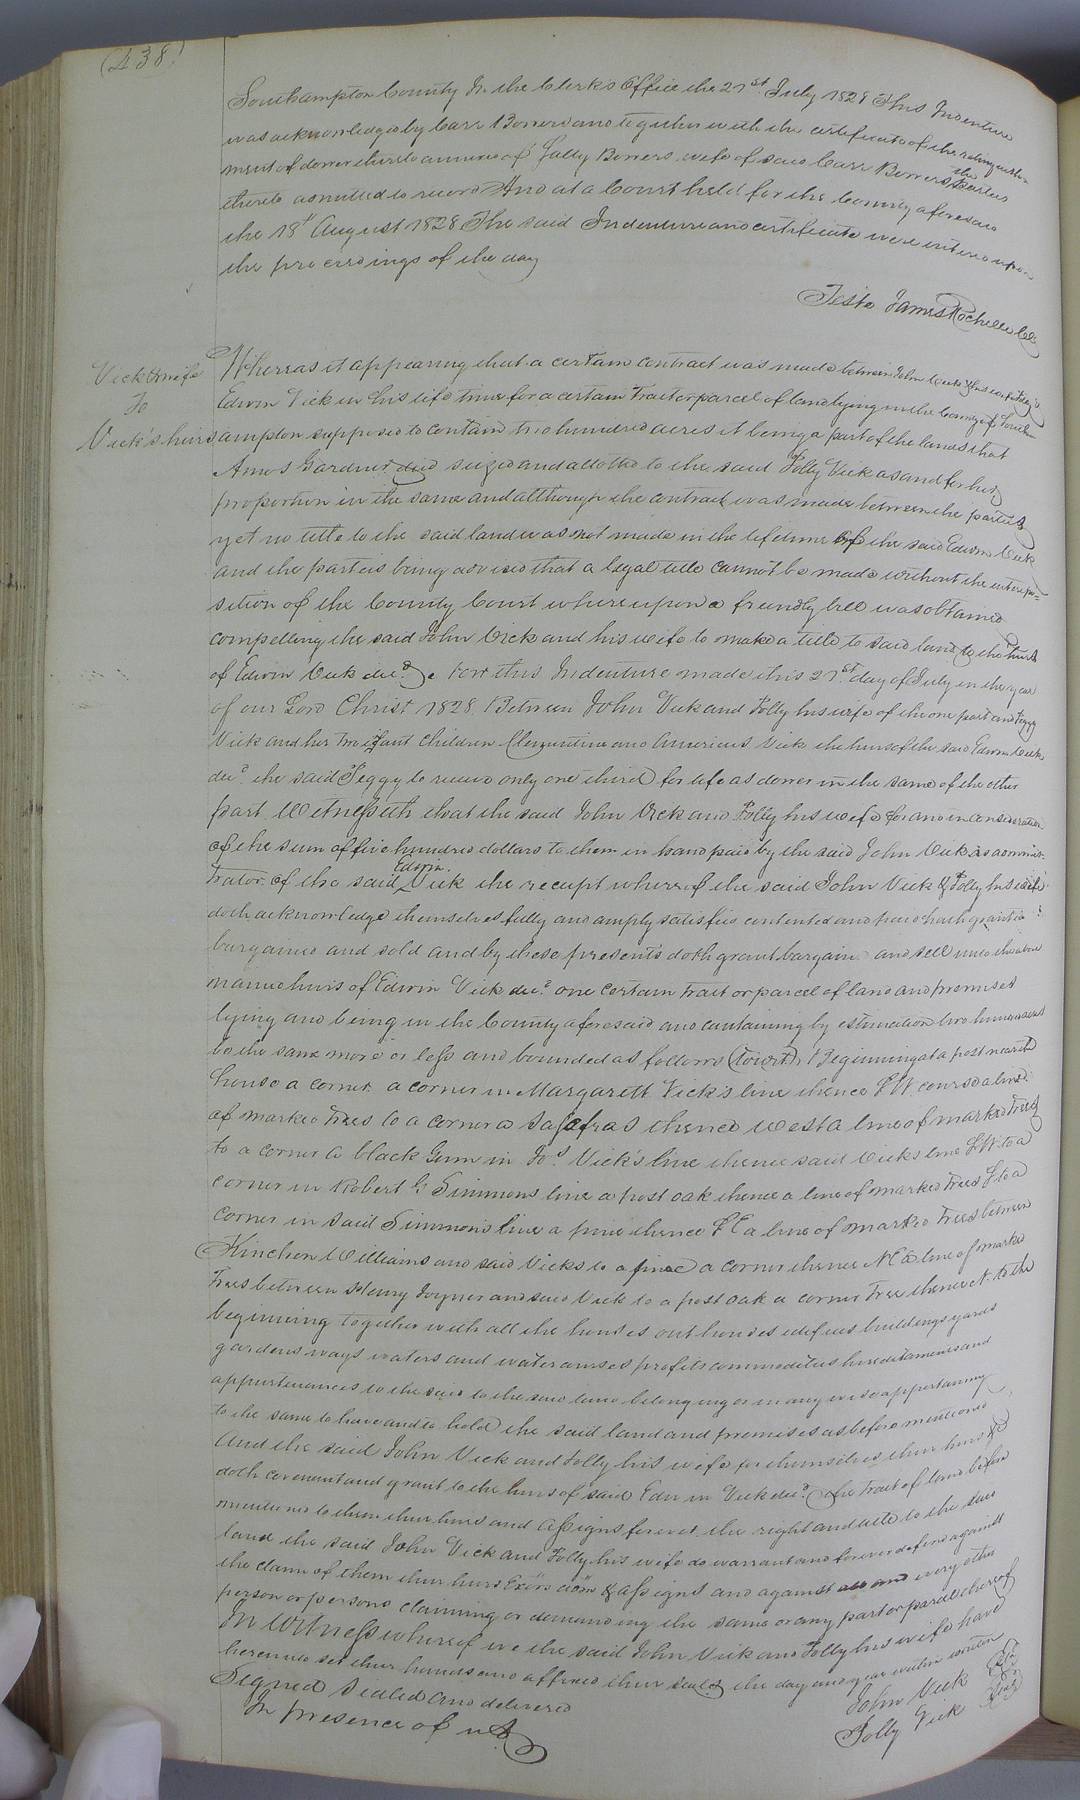 (438)
Southampton County In the Clerk's Office the 21st July 1828 This Indenture
was acknowledged by Carr Bowers and together with the certificate of the relinquish-
ment of dower thereto annexed of Sally Bowers wife of said Carr Bowers the parties
thereto admitted to record And at a Court held for the County aforesaid
the 18th August 1828 The said Indenture and certificate were entered upon
the proceedings of the day
Teste James Rochelle Clk
Vick & wife
To
Vick's heirs
Whereas it appearing that a certain contract was made between John Vick & his wife Polly &
Edwin Vick in his life time for a certain Tract or parcel of land lying in the County of South-
ampton supposed to contain two hundred acres it being a part of the lands that
Amos Gardner died seized and allotted to the said Polly Vick as and for her
proportion in the same and although the contract was made between the parties
yet no title to the said land was not made in the lifetime of the said Edwin Vick
and the parties being advised that a legal title cannot be made without the interpo-
sition of the County Court whereupon a friendly bill was obtained
compelling the said John Vick and his wife to make a title to said land to the heirs
of Edwin Vick decd. Now this Indenture made this 21st day of July in the year
of our Lord Christ 1828 Between John Vick and Polly his wife of the one part and Peggy
Vick and her two infant children Clementina and Americus Vick the heirs of the said Edwin Vick
decd the said Peggy to receive only one third for life as dower in the same of the other
part Witnesseth that the said John Vick and Polly his wife for and in consideration
of the sum of five hundred dollars to them in hand paid by the said John Vick as adminis-
trator of the said Edwin Vick the receipt whereof the said John Vick & Polly his wife
doth acknowledge themselves fully and amply satisfied contented and paid hath granted
bargained and sold and by these presents doth grant bargain and sell unto the above
named heirs of Edwin Vick decd one certain tract or parcel of land and premises
lying and being in the County aforesaid and containing by estimation two hundred acres
be the same more or less and bounded as follows (towit) Beginning at a post near the
house a corner a corner in Margarett Vick's line thence S W. course a line
of marked trees to a corner a Sasafras thence west a line of marked trees
to a corner a black Gum in Jos. Vick's line thence said Vicks line S W to a
corner in Robert G Simmons line a post oak thence a line of marked trees S to a
corner in said Simmons line a pine thence S E a line of marked trees between
Kinchen Williams and said Vicks to a pine a corner thence N E a line of marked
trees between Henry Joyner and said Vick to a post oak a corner tree thence N. to the
beginning together with all the houses out houses edifices buildings yards
gardens ways waters and water courses profits commodities hereditaments and
appurtenances to the said to the said land belonging or in any wise appertaining
to the same to have and to hold the said land and premises as before mentioned
And the said John Vick and Polly his wife for themselves their heirs &c
doth covenant and grant to the heirs of said Edwin Vick decd. the tract of land before
mentioned to them their heirs and assigns forever the right and title to the said
land the said John Vick and Polly his wife do warrant and forever defend against
the claim of them their heirs Exors adm & assigns and against all and every other
person or persons claiming or demanding the same or any part or parcel thereof
In Witness whereof we the said John Vick and Polly his wife have
hereunto set their hands and affixed their seals the day and year within written
Signed Sealed and delivered
In presence of us
John Vick (Seal)
Polly Vick (Seal)